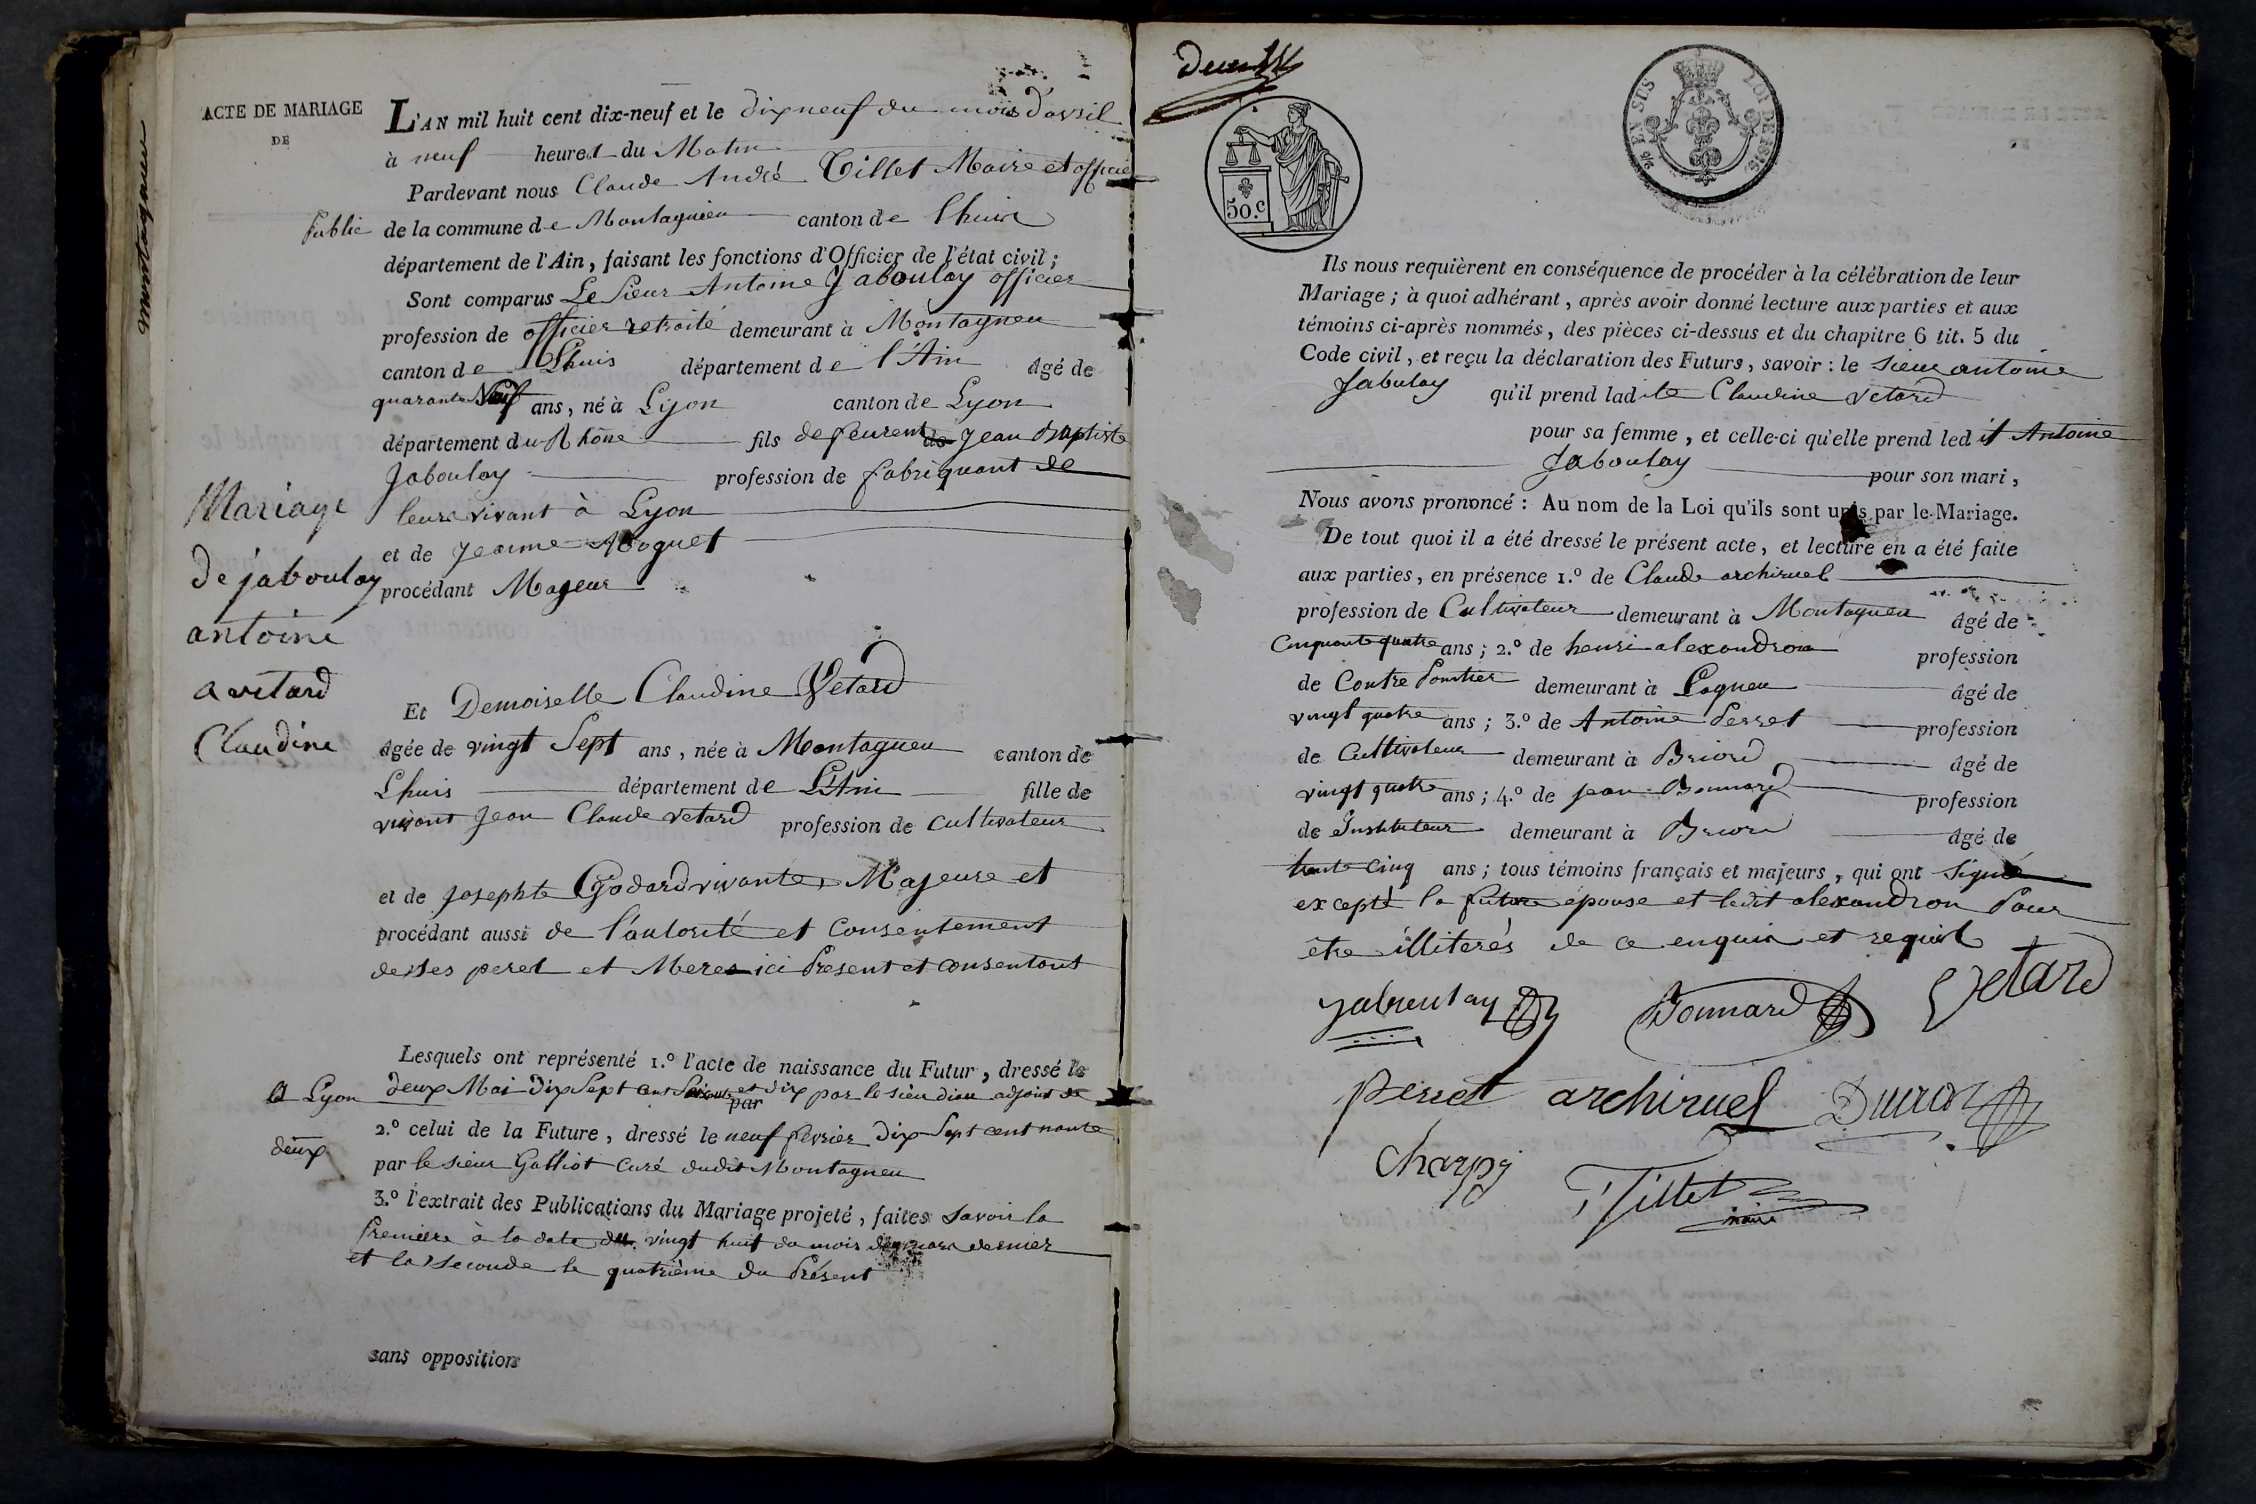 montagnieu
ACTE DE MARIAGE
DE
L'AN mil huit cent dix-neuf et le dix neuf du mois d'avril
à neuf heures du Matin
Pardevant nous Claude André Tillet Maire et officier
public de la commune de Montagnieu canton de Lhuis
département de l'Ain, faisant les fonctions d'Officier de l'état civil ;
Sont comparus Le Sieur Antoine Jaboulay officier
profession de officier retraité demeurant à Montagneu
canton de Lhuis département de l'Ain âgé de
quarante Neuf ans, né à Lyon canton de Lyon
département du Rhône fils de feu Jean Baptiste
Jaboulay profession de fabriquant de
leur vivant à Lyon
et de Jeanne Moguet
procédant Majeur
Mariage
de jaboulay
antoine
a vetard
Claudine
Et Demoiselle Claudine Vetard
âgée de vingt Sept ans, née à Montagneu canton de
Lhuis département de L'Ain fille de
vivant Jean Claude vetard profession de cultivateur
et de Josephte Godard vivante, Majeure et
procédant aussi de l'autorité et consentement
de ses peres et Meres ici présent et consentant
Lesquels ont représenté 1.° l'acte de naissance du Futur, dressé le
A Lyon deux Mai dix Sept cent Soixante et dix par le sieu adjoint de
par
2.° celui de la Future, dressé le neuf fevrier dix Sept cent nonte
deux par le sieur Galliot Curé dudit Montagneu
3.° l'extrait des Publications du Mariage projeté, faites savoir la
premiere à la date du vingt huit du mois de mars dernier
et la seconde le quatrième du présent
sans opposition
50.c
EN SUS
LOI DE 1816
Ils nous requièrent en conséquence de procéder à la célébration de leur
Mariage ; à quoi adhérant, après avoir donné lecture aux parties et aux
témoins ci-après nommés, des pièces ci-dessus et du chapitre 6 tit. 5 du
Code civil, et reçu la déclaration des Futurs, savoir : le sieur antoine
Jabulay qu'il prend ladite Claudine Vetard
pour sa femme, et celle-ci qu'elle prend ledit Antoine
Jaboulay pour son mari,
Nous avons prononcé : Au nom de la Loi qu'ils sont unis par le Mariage.
De tout quoi il a été dressé le présent acte, et lecture en a été faite
aux parties, en présence 1.° de Claude archiruel
profession de Cultivateur demeurant à Montagneu âgé de
Cinquante quatre ans ; 2.° de henri alexandron profession
de Contre pointier demeurant à Lagneu âgé de
vingt quatre ans ; 3.° de Antoine Perret profession
de Cultivateur demeurant à Briord âgé de
vingt quatre ans ; 4.° de jean Bonnard profession
de Instituteur demeurant à Briord âgé de
trente Cinq ans ; tous témoins français et majeurs, qui ont signé
excepté la future épouse et ledit alexandron pour
être illiterés de ce enquis et requis
jaboulay Bonnard Vetard
perret archiruel
charpy Tillet
maire